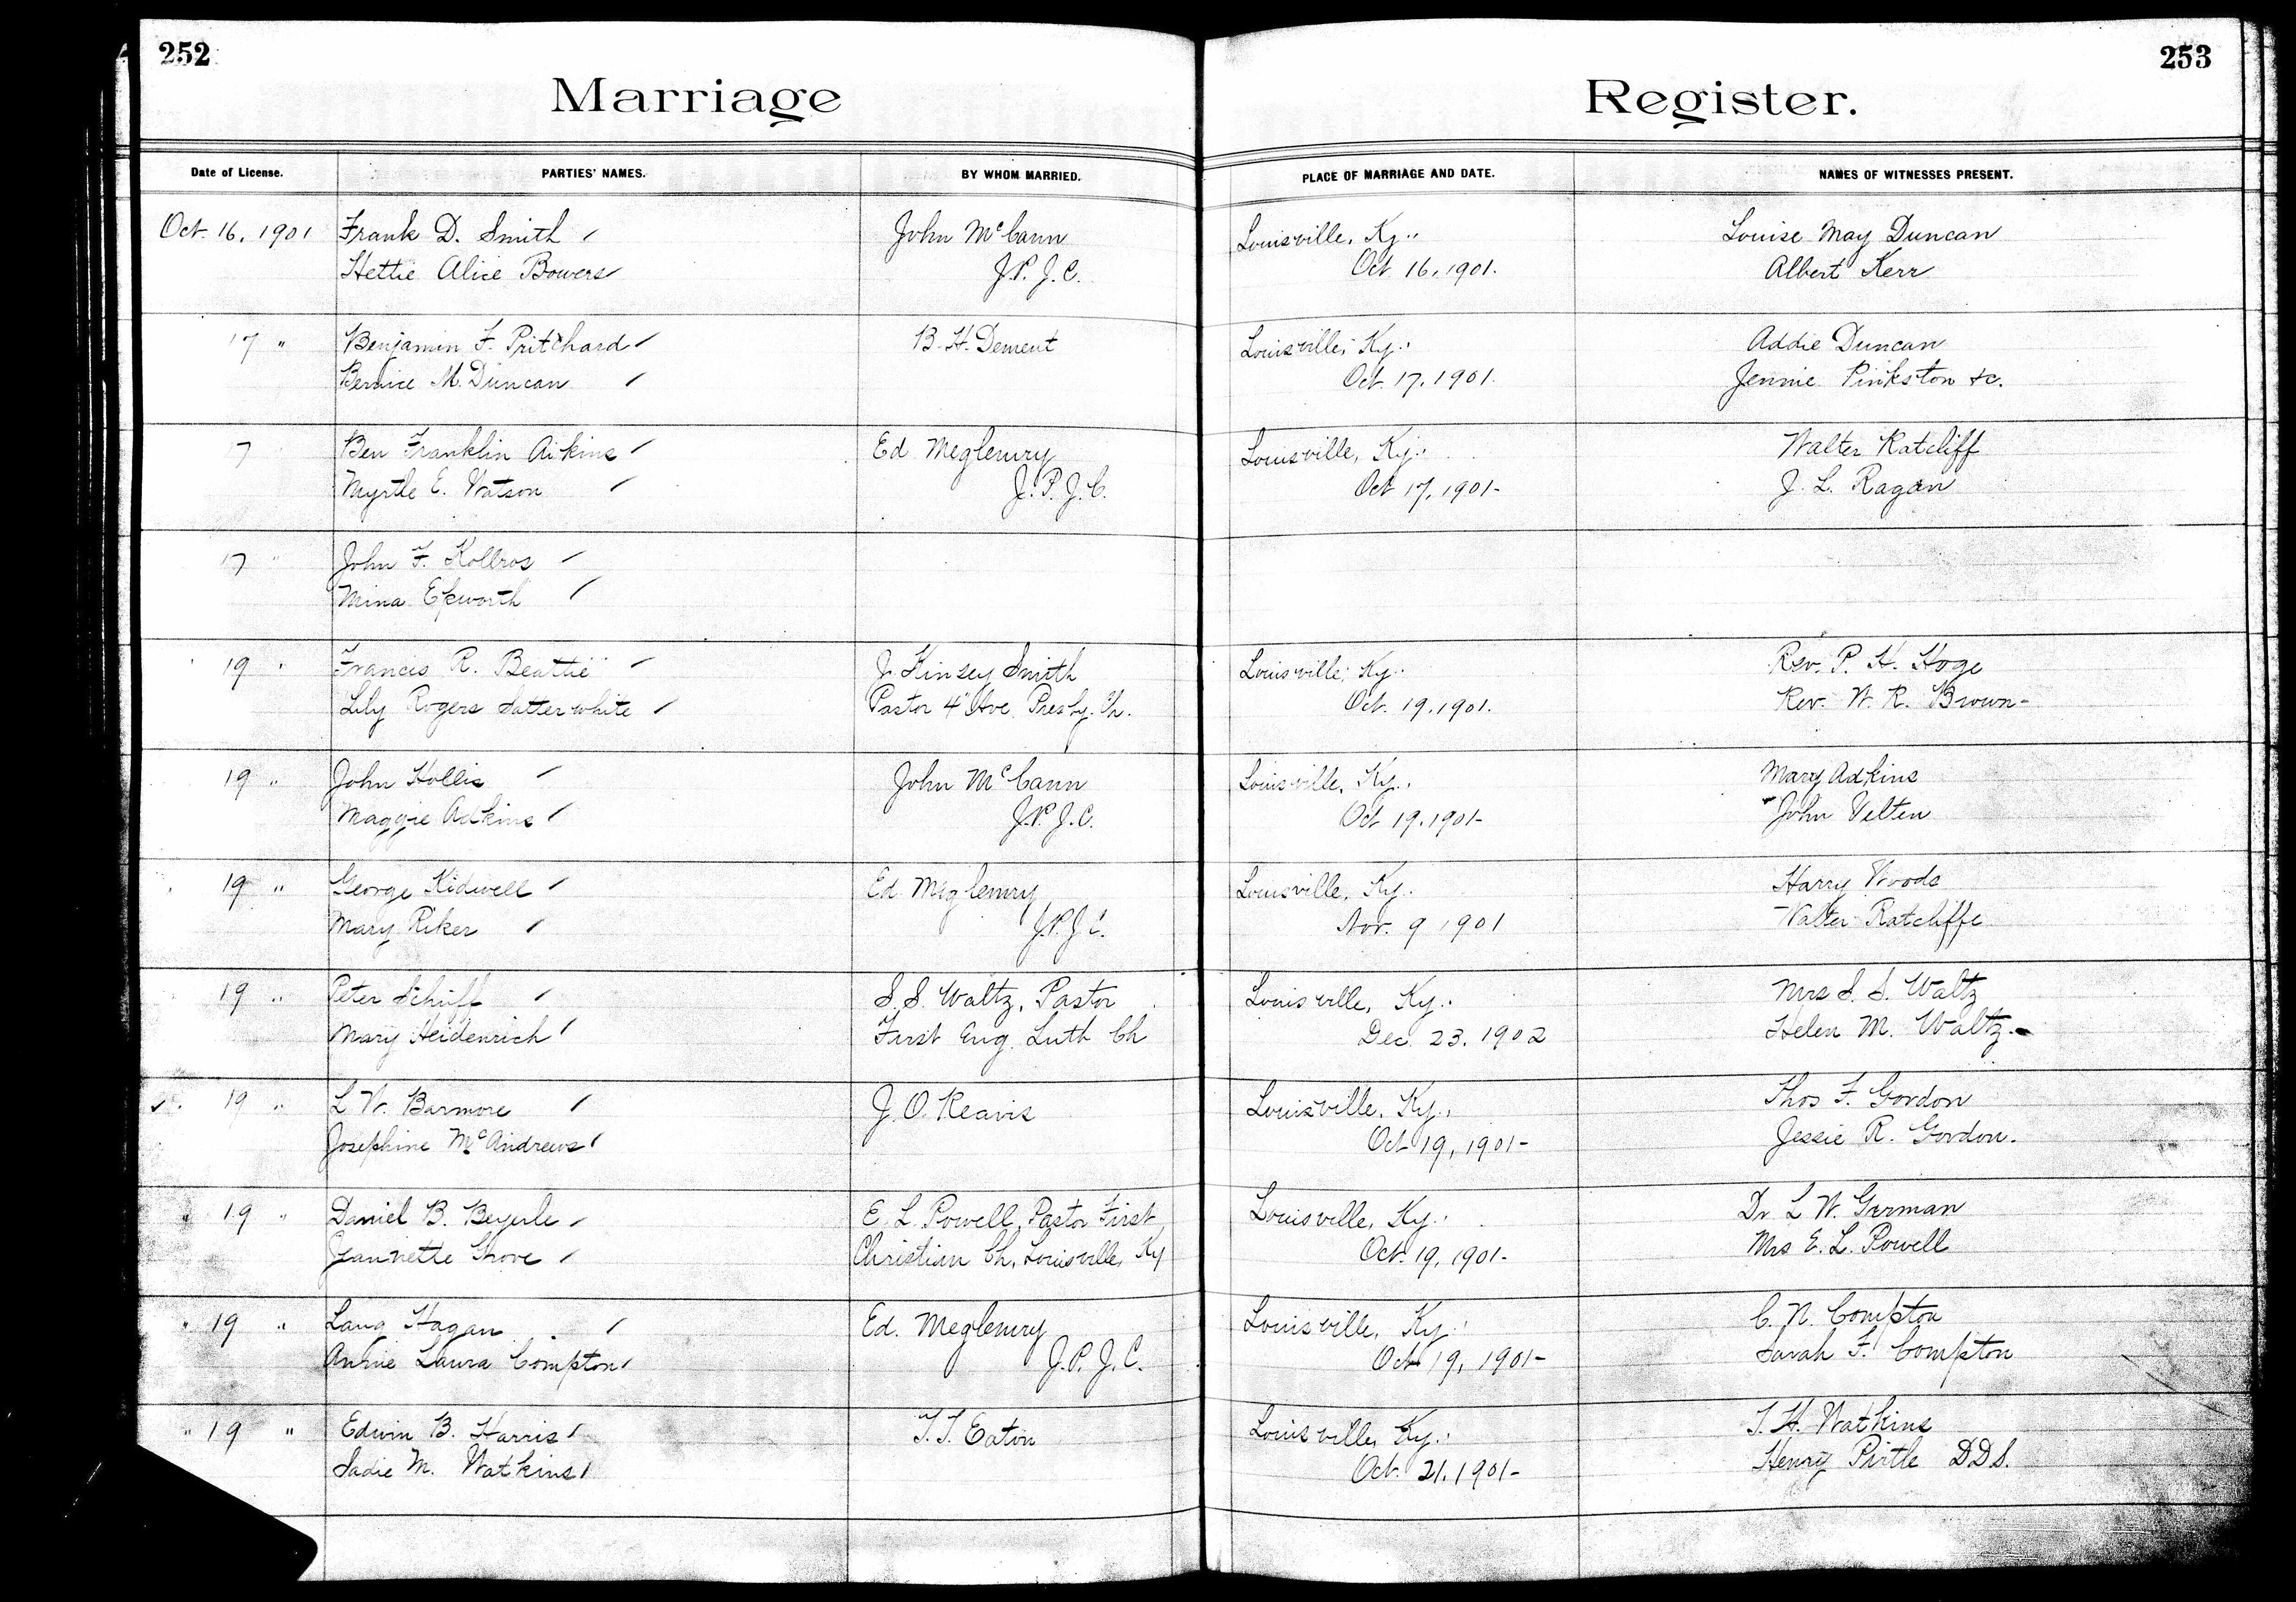 252
253
Marriage
Register.
Date of License.
PARTIES' NAMES.
BY WHOM MARRIED.
PLACE OF MARRIAGE AND DATE.
NAMES OF WITNESSES PRESENT.
Oct. 16, 1901 Frank D. Smith John McCann Louisville, Ky., Louise May Duncan
Hettie Alice Bowers J.P. J.C. Oct 16, 1901. Albert Kerr
17 " Benjamin F. Pritchard B. H. Dement Louisville, Ky., Addie Duncan
Bernice M. Duncan Oct. 17, 1901. Jennie Pinkston &c.
7 Ben Franklin Aikins Ed Meglemry Louisville, Ky., Walter Ratcliff
Myrtle E. Watson J.P. J.C. Oct 17, 1901- J. L. Ragan
17 " John F. Kollros
Mina Epworth
19 " Francis R. Beattie J. Kinsey Smith Louisville, Ky. Rev. P. H. Hoge
Lily Rogers Satterwhite Pastor 4" Ave. Presby. Ch. Oct. 19, 1901. Rev. W. R. Brown-
19 " John Hollis John McCann Louisville, Ky., Mary Adkins
Maggie Adkins J.P. J.C. Oct 19, 1901- John Velten
19 " George Kidwell Ed Meglemry Louisville, Ky. Harry Woods
Mary Riker J.P. J.C. Nov. 9 1901 Walter Ratcliffe
19 " Peter Schuff S. S. Waltz, Pastor Louisville, Ky., Mrs S. S. Waltz
Mary Heidenrich First Eng. Luth Ch Dec. 23, 1902 Helen M. Waltz-
19 " L W. Barmore J. O. Reavis Louisville, Ky., Thos F. Gordon
Josephine McAndrews Oct 19, 1901- Jessie R. Gordon.
" 19 " Daniel B. Beyerle E. L. Powell, Pastor First Louisville, Ky., Dr. L W. German
Jeannette Grove Christian Ch, Louisville, Ky Oct. 19, 1901- Mrs E. L. Powell
" 19 " Hagan Ed. Meglemry Louisville, Ky., C. N. Compton
Annie Laura Compton J.P. J.C. Oct 19, 1901- Sarah F. Compton
" 19 " Edwin B. Harris T. T. Eaton Louisville, Ky., T. H. Watkins
Sadie M. Watkins Oct. 21, 1901- Henry Pirtle DDS.